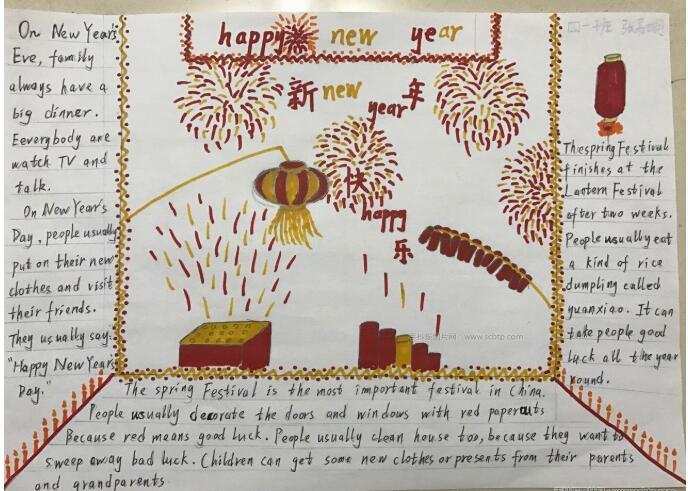 happy new year
新 new 年
year
快
happy
乐
On New Year's
Eve, family
always have a
big dinner.
Eeverybody are
watch TV and
talk.
On New Year's
Day, people usually
put on their new
clothes and visit
their friends.
They usually say:
"Happy New Year's
Day."
Thespring Festival
finishes at the
Lantern Festival
after two weeks.
People usually eat
a kind of rice
dumpling called
yuanxiao. It can
take people good
luck all the year
round.
The spring Festival is the most important festival in China.
People usually decorate the doors and windows with red papercuts
Because red means good luck. People usually clean house too, because they want to
sweep away bad luck. Children can get some new clothes or presents from their parents
and grandparents.